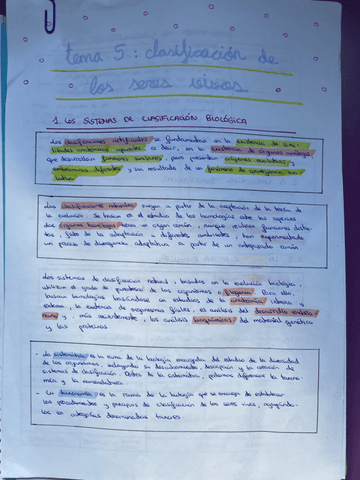 tema 5: clasificación de
los seres vivos.
1. LOS SISTEMAS DE CLASIFICACIÓN BIOLÓGICA
Las clasificaciones artificiales se fundamentan en la existencia de simi-
litudes anatómicas aparentes, es decir, en la existencia de órganos análogos
que desarrollan funciones similares, pero presentan orígenes evolutivos y
embrionarios diferentes y son resultado de un fenómeno de convergencia evo-
lutiva
Las clasificaciones naturales surgen a partir de la aceptación de la teoría de
la evolución. Se basan en el estudio de las homologías entre las especies
dos órganos homólogos tienen un origen común, aunque realicen funciones distin-
tas, fruto de la adaptación a diferentes ambientes; han experimentado
un proceso de divergencia adaptativa a partir de un antepasado común
Los sistemas de clasificación natural, basados en la evolución biológica,
utilizan el grado de parentesco de los organismos o filogenia. Para ello,
buscan homologías basándose en estudios de la anatomía interna y
externa, la existencia de organismos fósiles, el análisis del desarrollo embrio-
nario y, más recientemente, los análisis bioquímicos del material genético
y las proteínas
- La sistemática es la rama de la biología encargada del estudio de la diversidad
de los organismos, incluyendo su descubrimiento, descripción y la creación de
sistemas de clasificación. Dentro de la sistemática, podemos diferenciar la taxono-
mía y la nomenclatura
- La taxonomía es la rama de la biología que se encarga de establecer
los procedimientos y principios de clasificación de los seres vivos, agrupándo-
los en categorías denominadas taxones